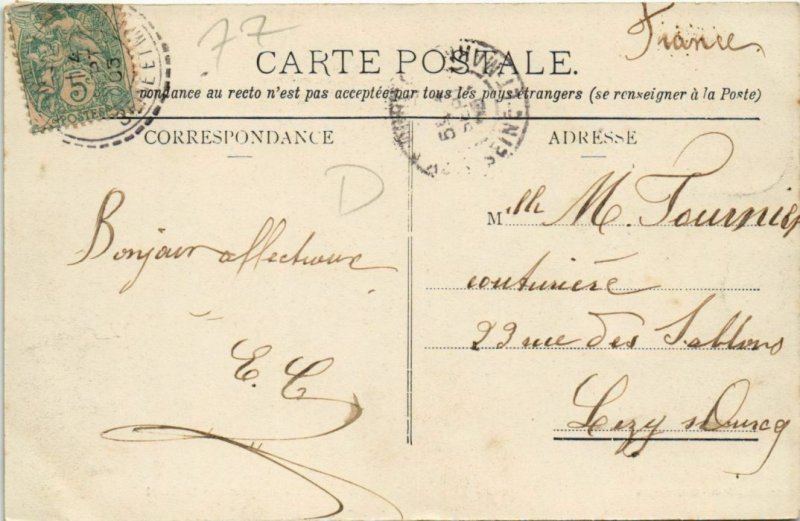 77
France
CARTE POSTALE.
pondance au recto n'est pas acceptée par tous les pays étrangers (se renseigner à la Poste)
CORRESPONDANCE
ADRESSE
D
Bonjour affectueux
E. C
Mlle M. Tournier
couturière
23 rue des Sablons
Lizy s Ourcq
5
POSTES
SEINE